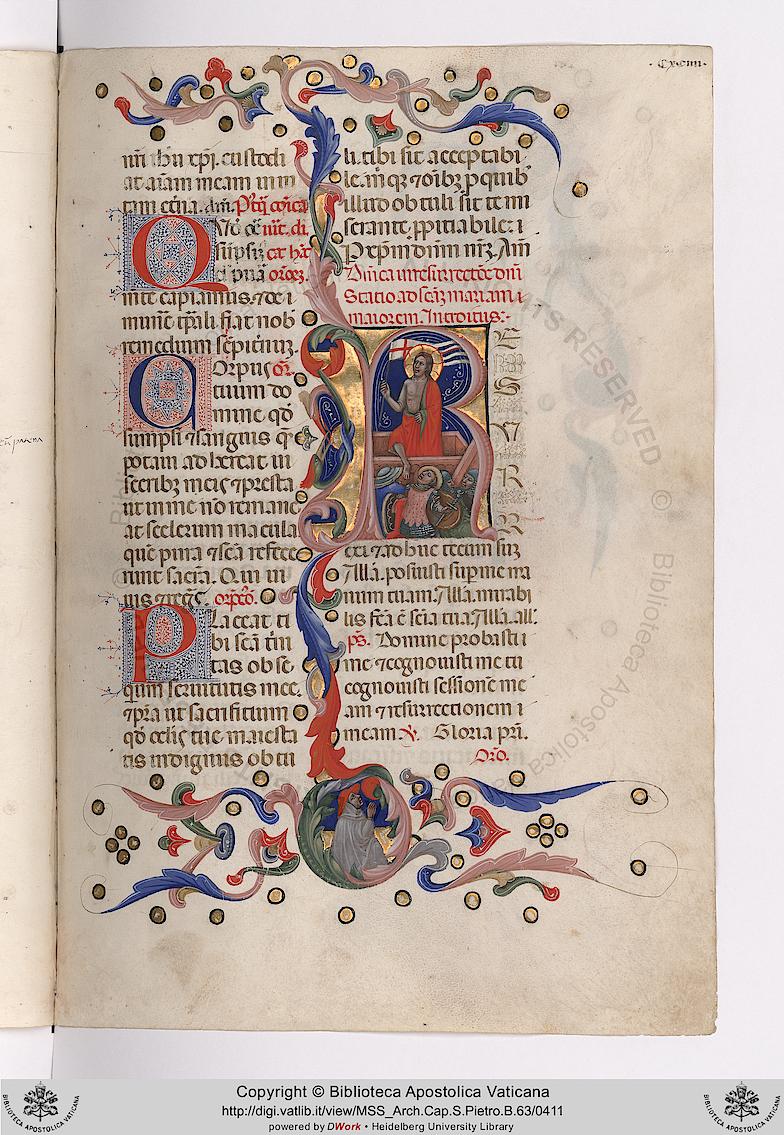 .cxciiii.
nri ihu xpi. custodi
at aiam meam in vi
tam eterna. Am. Postq comica
Quod ore sut. di
supsit cat hac
d pura oroez.
mte capiamus. & de
munere tpali. fiat nob
remedium sepiternuz.
Corpus or.
tuum do
mine. qd
sumpsi & sanguis que
potaui adhereat vi
sceribz meis & presta
ut in me no remane
at scelerum macula
que pura & sca refece
runt sacra. Qui vi
uis & regs.
Placeat ti
bi sca tri
nitas obse
quium seruitutis mee.
& pra ut sacrificium
qd oclis tue maiesta
tis indignus obtu
li. tibi sit acceptabi
le. miqz & oibz p quib
illud obtuli sit te mi
serante. ppitiabile. i
P xpm dnm nrz. Am
Dnica in resurrectoe dni
Statio ad scaz mariam
maiorem. Introitus.
RESVRR
exi & adhuc tecum suz
Alla. posuisti sup me ma
num tuam. Alla. mirabi
lis fca e scia tua. Alla. all.
ps. Domine probasti
me & cognouisti me tu
cognouisti sessione me
am & resurrectionem
meam. V. Gloria pri.
Oro.
RIGHTS RESERVED
© Biblioteca Apostolica
Copyright © Biblioteca Apostolica Vaticana
http://digi.vatlib.it/view/MSS_Arch.Cap.S.Pietro.B.63/0411
powered by DWork • Heidelberg University Library